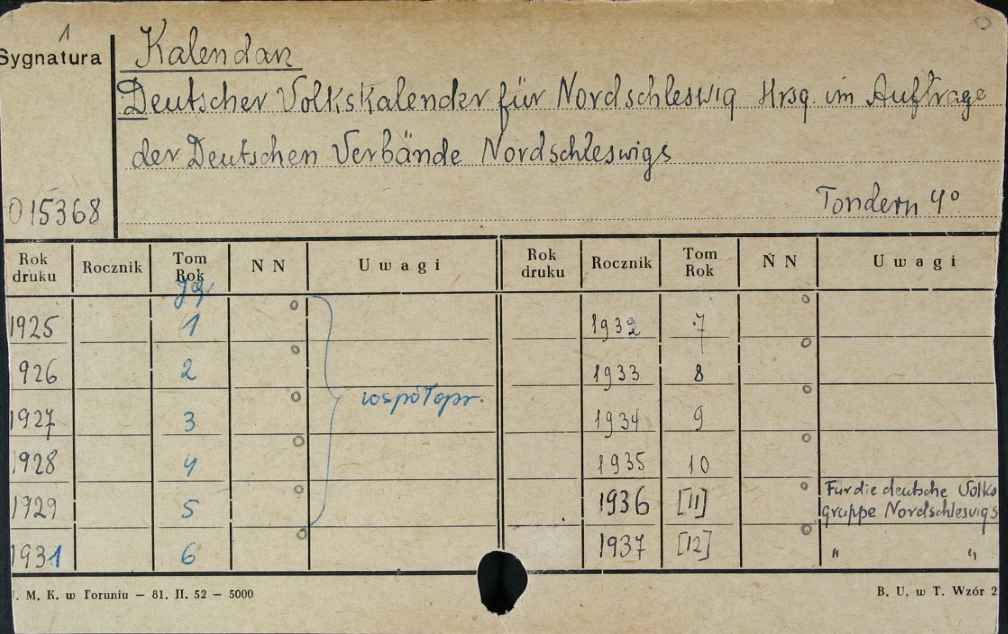 1
Sygnatura
Kalendar
Deutscher Volkskalender für Nordschleswig Hrsg. im Auftrage
der Deutschen Verbände Nordschleswigs
015368
Tondern 4°
Rok druku Rocznik Tom Rok N N Uwagi Rok druku Rocznik Tom Rok N N Uwagi
Jg.
1925 1 1932 7
926 2 1933 8
współopr.
1927 3 1934 9
1928 4 1935 10
1929 5 1936 [11] Für die deutsche Volks
gruppe Nordschleswigs
1931 6 1937 [12] " "
. M. K. w Toruniu — 81. II. 52 — 5000 B. U. w T. Wzór 2